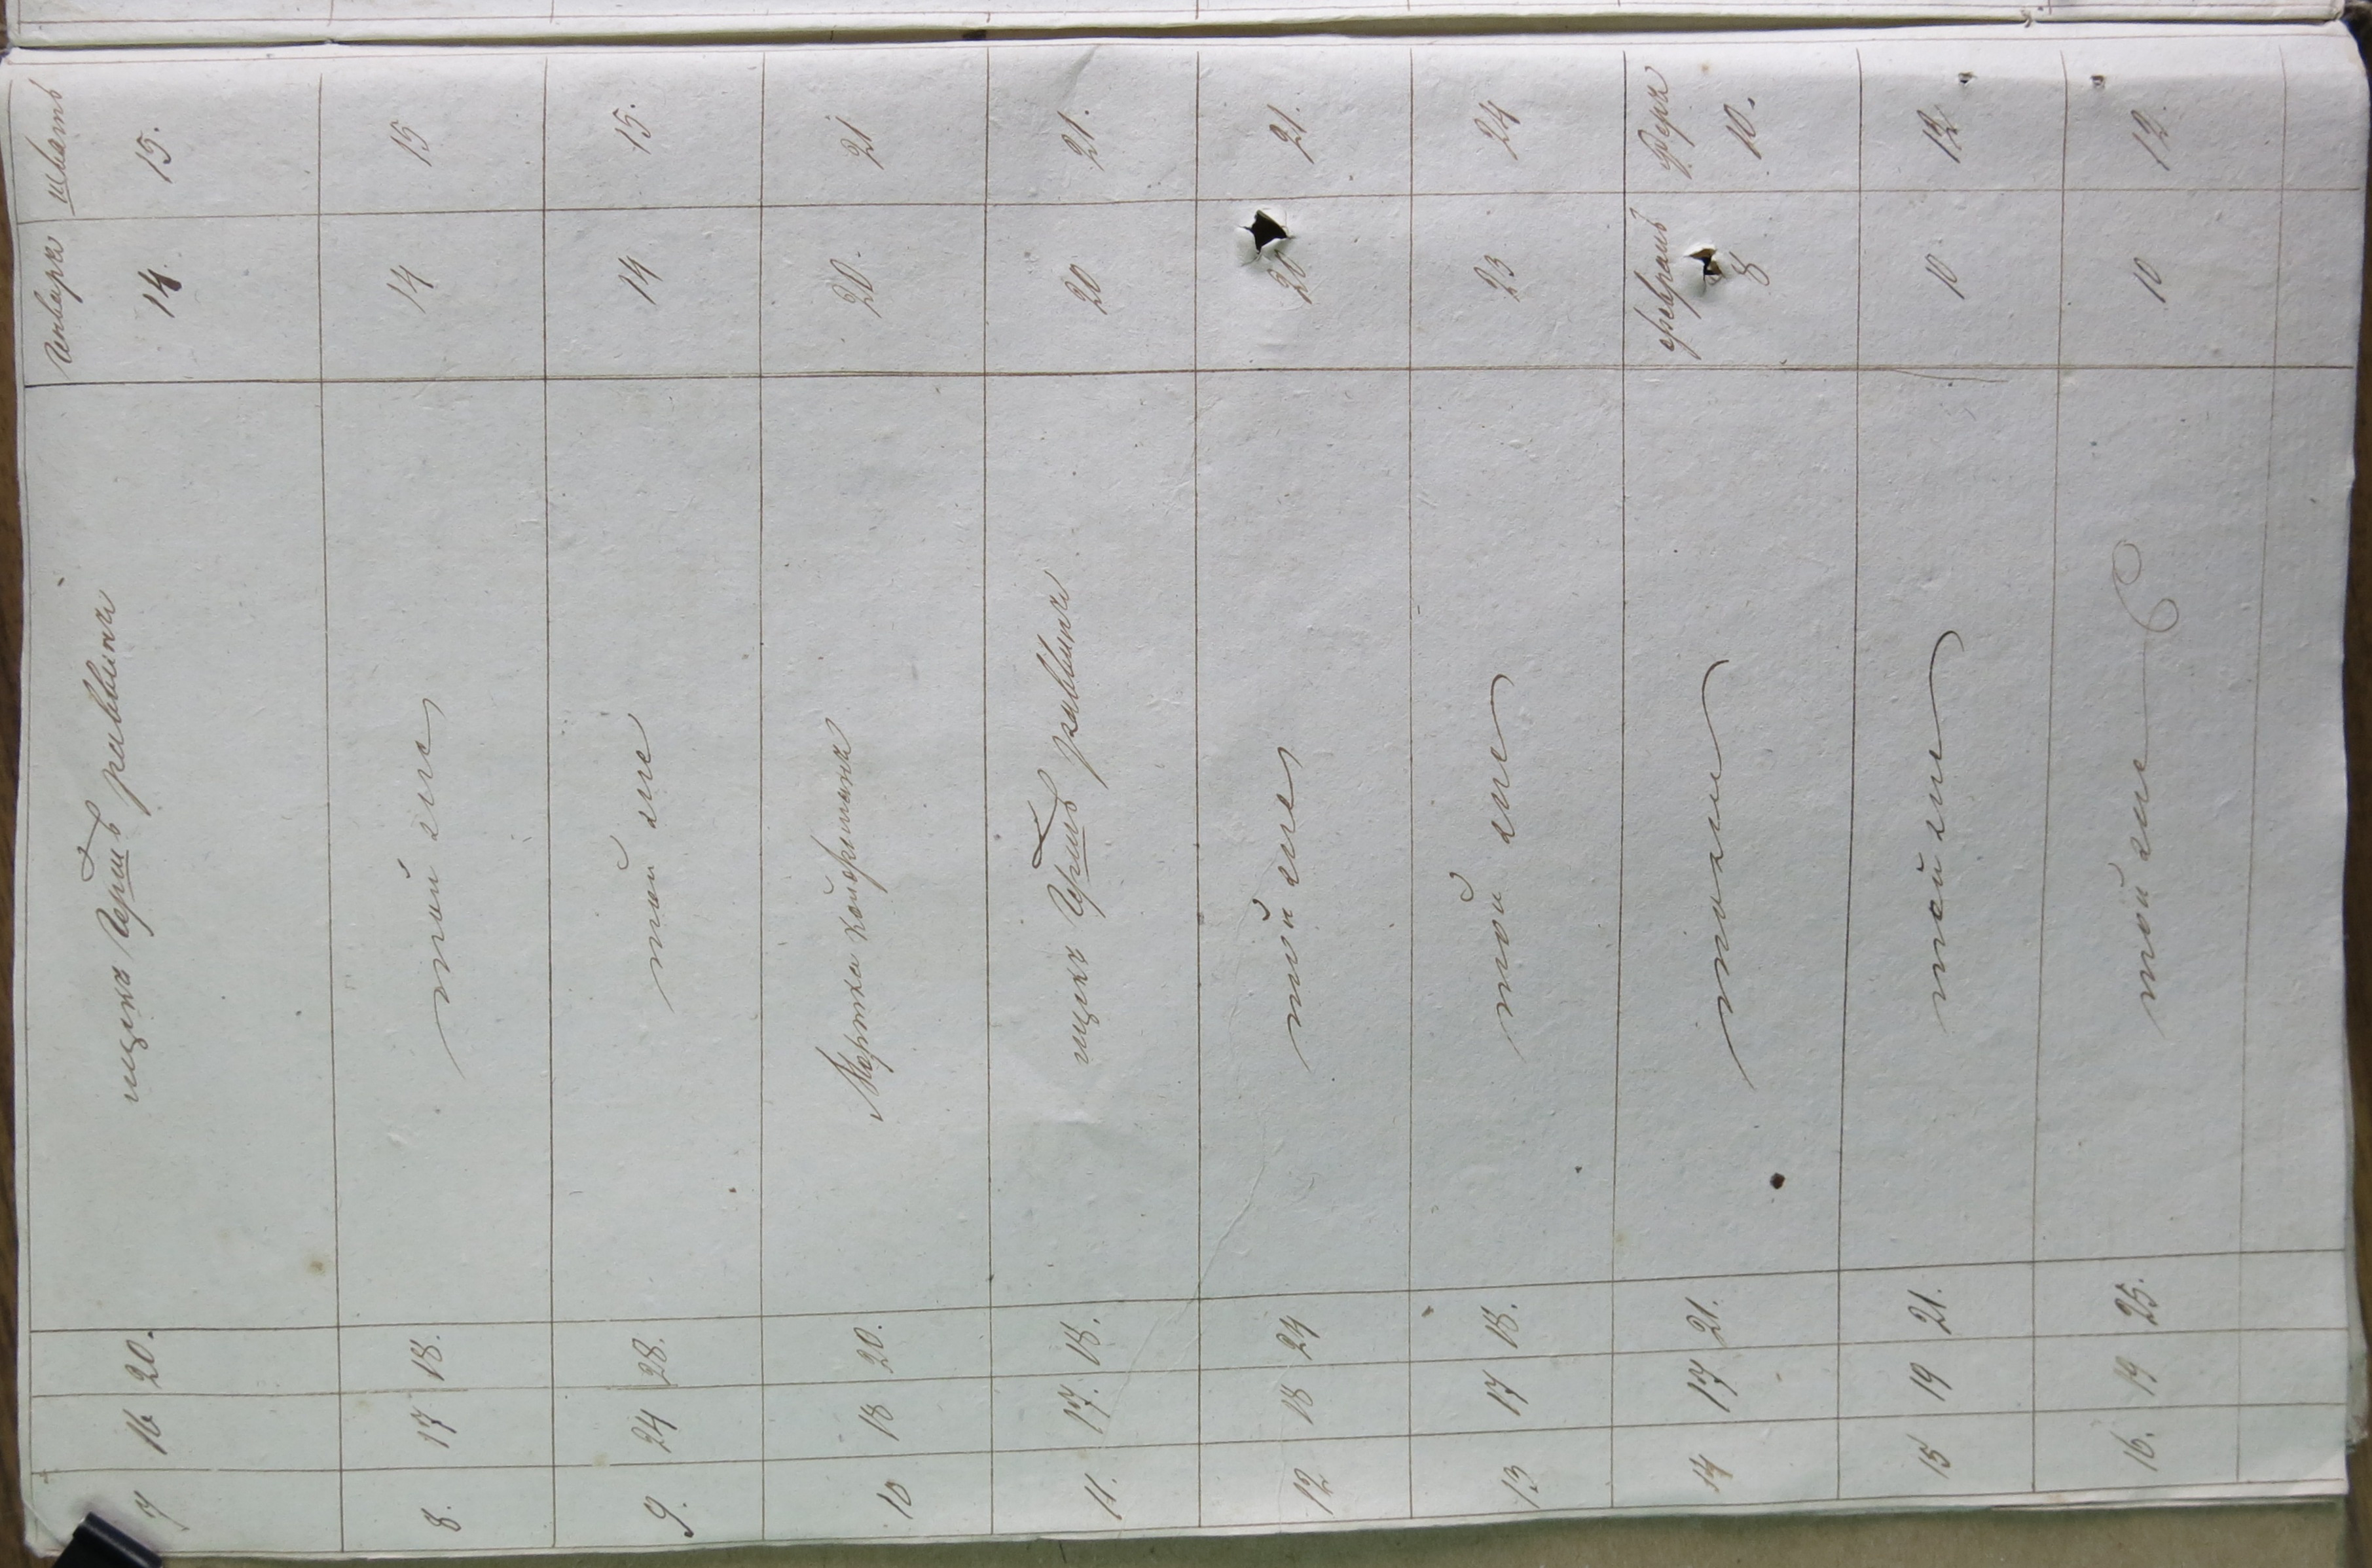 7 16 20. ицикъ Гершъ раввинъ Январь 14. шватъ 15.
8. 17 18. той же 14 15
9. 24 28. той же 14 15.
10 18 20. 20. 21
11. 17. 18. ицикъ Гершъ раввинъ 20 21.
12 18 24 той же 20 21.
13 17 18. той же 23 24
14 17 21. тоже февраль 8 10.
15 19 21. той же 10 12
16. 19 25. той же 10 12.